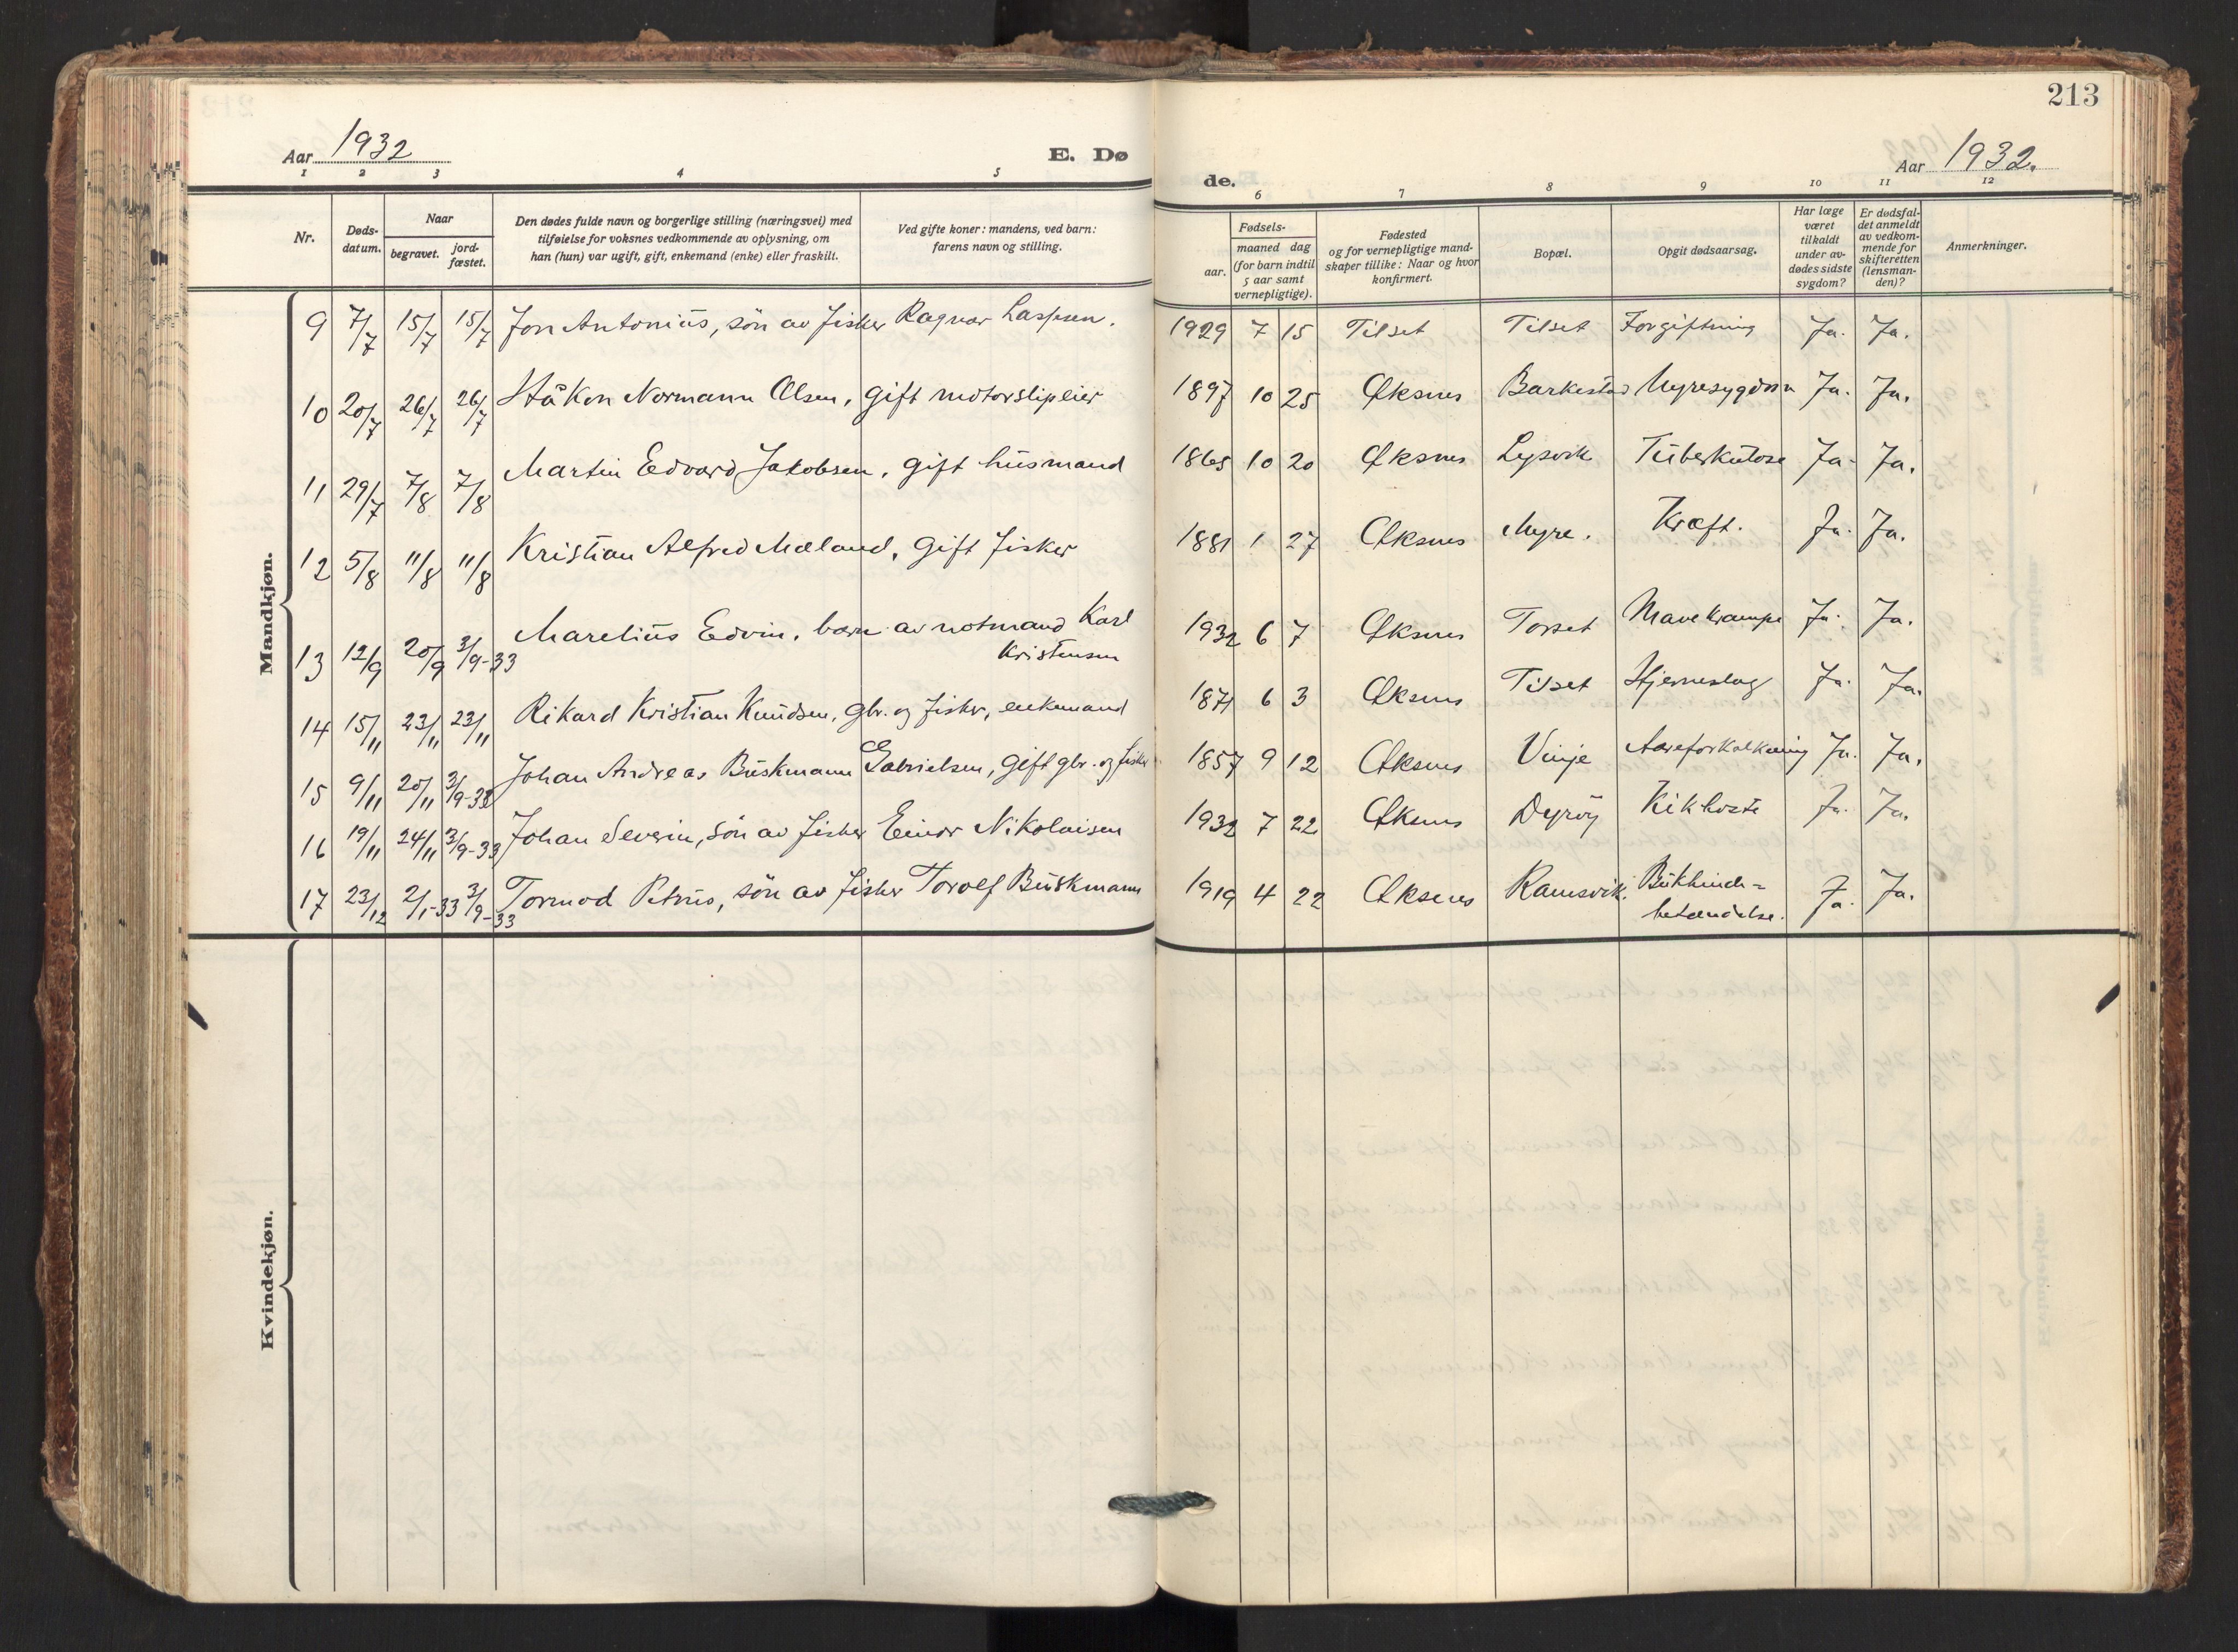 213
Aar 1932
E. Dø
de.
Aar 1932.
1 2 3 4 5 6 7 8 9 10 11 12
Nr.
Døds-
datum.
Naar
begravet.
jord-
fæstet.
Den dødes fulde navn og borgerlige stilling (næringsvei) med
tilføielse for voksnes vedkommende av oplysning, om
han (hun) var ugift, gift, enkemand (enke) eller fraskilt.
Ved gifte koner: mandens, ved barn:
farens navn og stilling.
Fødsels-
aar.
maaned dag
(for barn indtil
5 aar samt
vernepligtige).
Fødested
og for vernepligtige mand-
skaper tillike: Naar og hvor
konfirmert.
Bopæl.
Opgit dødsaarsag.
Har læge
været
tilkaldt
under av-
dødes sidste
sygdom?
Er dødsfal-
det anmeldt
av vedkom-
mende for
skifteretten
(lensman-
den)?
Anmerkninger.
Mandkjøn.
9 7/7 15/7 15/7 Jon Antonius, sön av fisker Ragnar 1929 7 15 Tilset Tilset Forgiftning Ja. Ja.
10 20/7 26/7 26/7 Håkon Normann Olsen, gift motorslipeier 1897 10 25 Øksnes Barkestad Nyresygdom Ja. Ja.
11 29/7 7/8 7/8 Martin Edvard Jakobsen, gift husmand 1865 10 20 Øksnes Lysvik Tuberkulose Ja. Ja.
12 5/8 11/8 11/8 Kristian Alfred Mæland, gift fisker 1881 1 27 Øksnes Myre. Kræft. Ja. Ja.
13 12/9 20/9 3/9-33 Marelius Edvin, barn av notmand Karl 1932 6 7 Øksnes Torset Mavekrampe Ja. Ja.
Kristensen
14 15/11 23/11 23/11 Rikard Kristian Knudsen, gbr. og fisker, enkemand 1871 6 3 Øksnes Tilset Hjerneslag Ja. Ja.
15 9/11 20/11 3/9-33 Johan Andreas Buskmann Gabrielsen, gift gbr. og fisker 1857 9 12 Øksnes Vinje Aareforkalkning Ja. Ja.
16 19/11 24/11 3/9-33 Johan Severin, sön av fisker Einar Nikolaisen 1932 7 22 Øksnes Dyröy Kikhoste Ja. Ja.
17 23/12 2/1-33 3/9-33 Tormod Petrus, sön av fisker Torolf Buskmann 1919 4 22 Øksnes Ramsvik. Bukhinde=
betændelse. Ja. Ja.
Kvindekjøn.